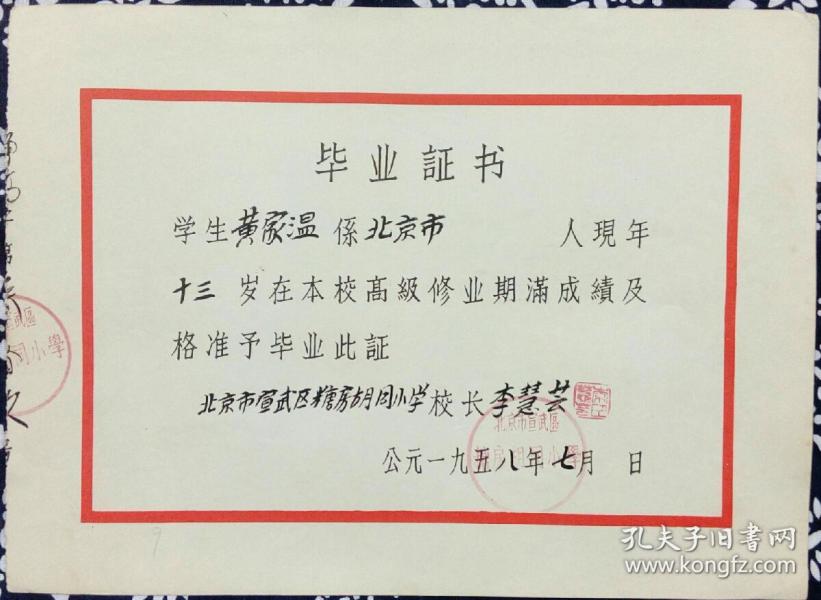 毕业証书
学生黄家温 係 北京市 人現年
十三 岁在本校高級修业期滿成績及
格准予毕业此証
北京市宣武区糖房胡同小学校长李慧芸
北京市宣武區
糖房胡同小學
公元一九五八年七月 日
武區
同小學
9
孔夫子旧书网
www.kongfz.com